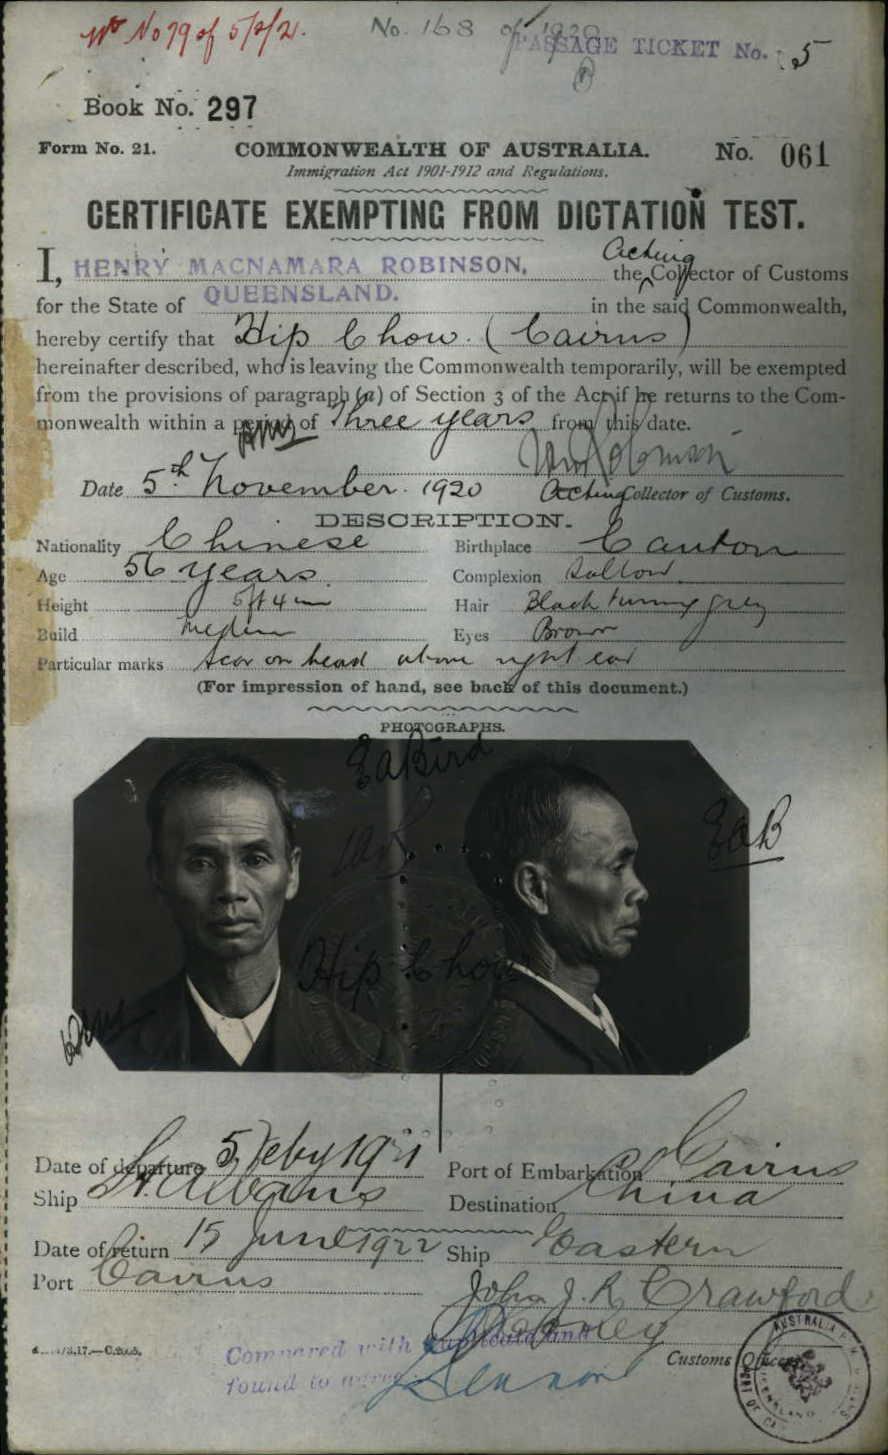 No 79 of 5/2/21.
No. 168 of 1920
PASSAGE TICKET No. 5
Book No. 297
Form No. 21.
COMMONWEALTH OF AUSTRALIA.
No. 061
Immigration Act 1901-1912 and Regulations.
CERTIFICATE EXEMPTING FROM DICTATION TEST.
I, HENRY MACNAMARA ROBINSON, the Acting Collector of Customs
for the State of QUEENSLAND. in the said Commonwealth,
hereby certify that Hip Chow. (Cairns)
hereinafter described, who is leaving the Commonwealth temporarily, will be exempted
from the provisions of paragraph (a) of Section 3 of the Act if he returns to the Com-
monwealth within a period of Three years from this date.
Date 5th November. 1920 Acting Collector of Customs.
DESCRIPTION.
Nationality Chinese Birthplace Canton
Age 56 years Complexion Sallow
Height 5ft 4in Hair Black turning grey
Build Medium Eyes Brown
Particular marks scar on head above right ear
(For impression of hand, see back of this document.)
PHOTOGRAPHS.
E A Bird
EAB
Hip Chow
Date of departure 5 Feby 1921 Port of Embarkation Cairns
Ship St. Albans Destination China
Date of return 15 June 1922 Ship Eastern
Port Cairns
John J. R. Crawford
Compared with duplicate and
found to agree.
Customs Officer